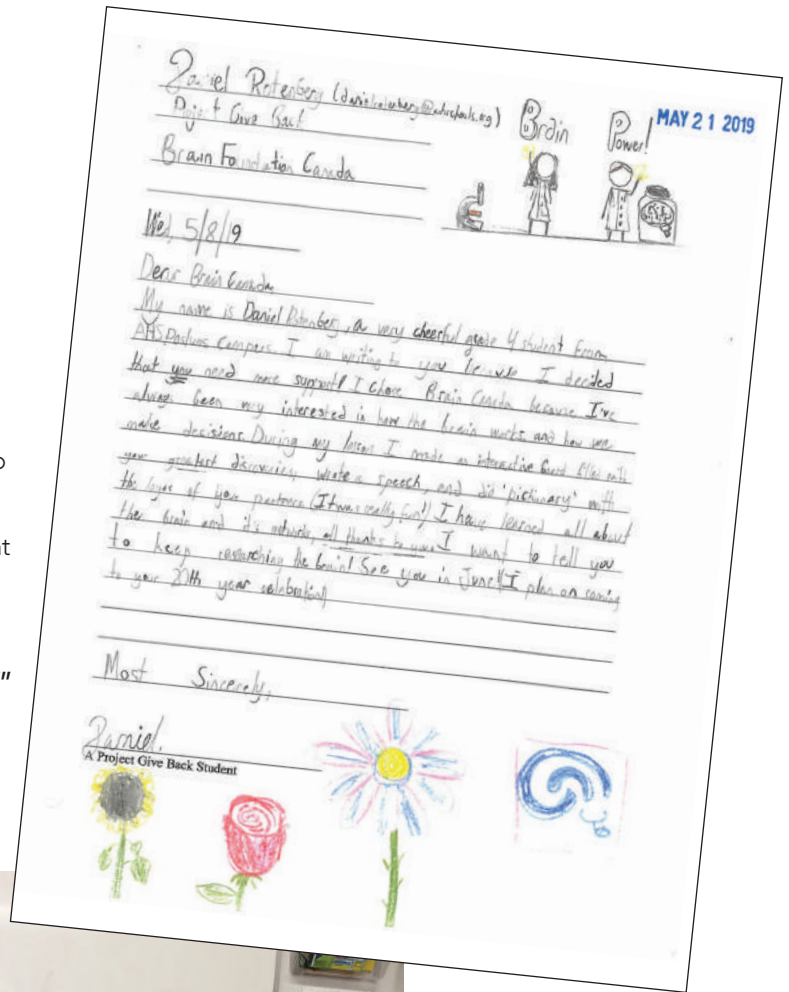 Daniel Rotenberg
Project Give Back
Brain Foundation Canada
Brain Power!
MAY 21 2019
Wed, 5/8/19
Dear Brain Canada
My name is Daniel Rotenberg, a very cheerful grade 4 student from
AHS Campus. I am writing to you because I decided
that you need more support! I chose Brain Canada because I've
always been very interested in how the brain works and how we
make decisions. During my lesson I made an interactive board filled with
your greatest discoveries, wrote a speech, and did "pictionary" with
the logos of your partners (It was really fun!) I have learned all about
the brain and it's networks, all thanks to you. I want to tell you
to keep researching the brain! See you in June! (I plan on coming
to your 20th year celebration)
Most Sincerely,
Daniel.
A Project Give Back Student
"